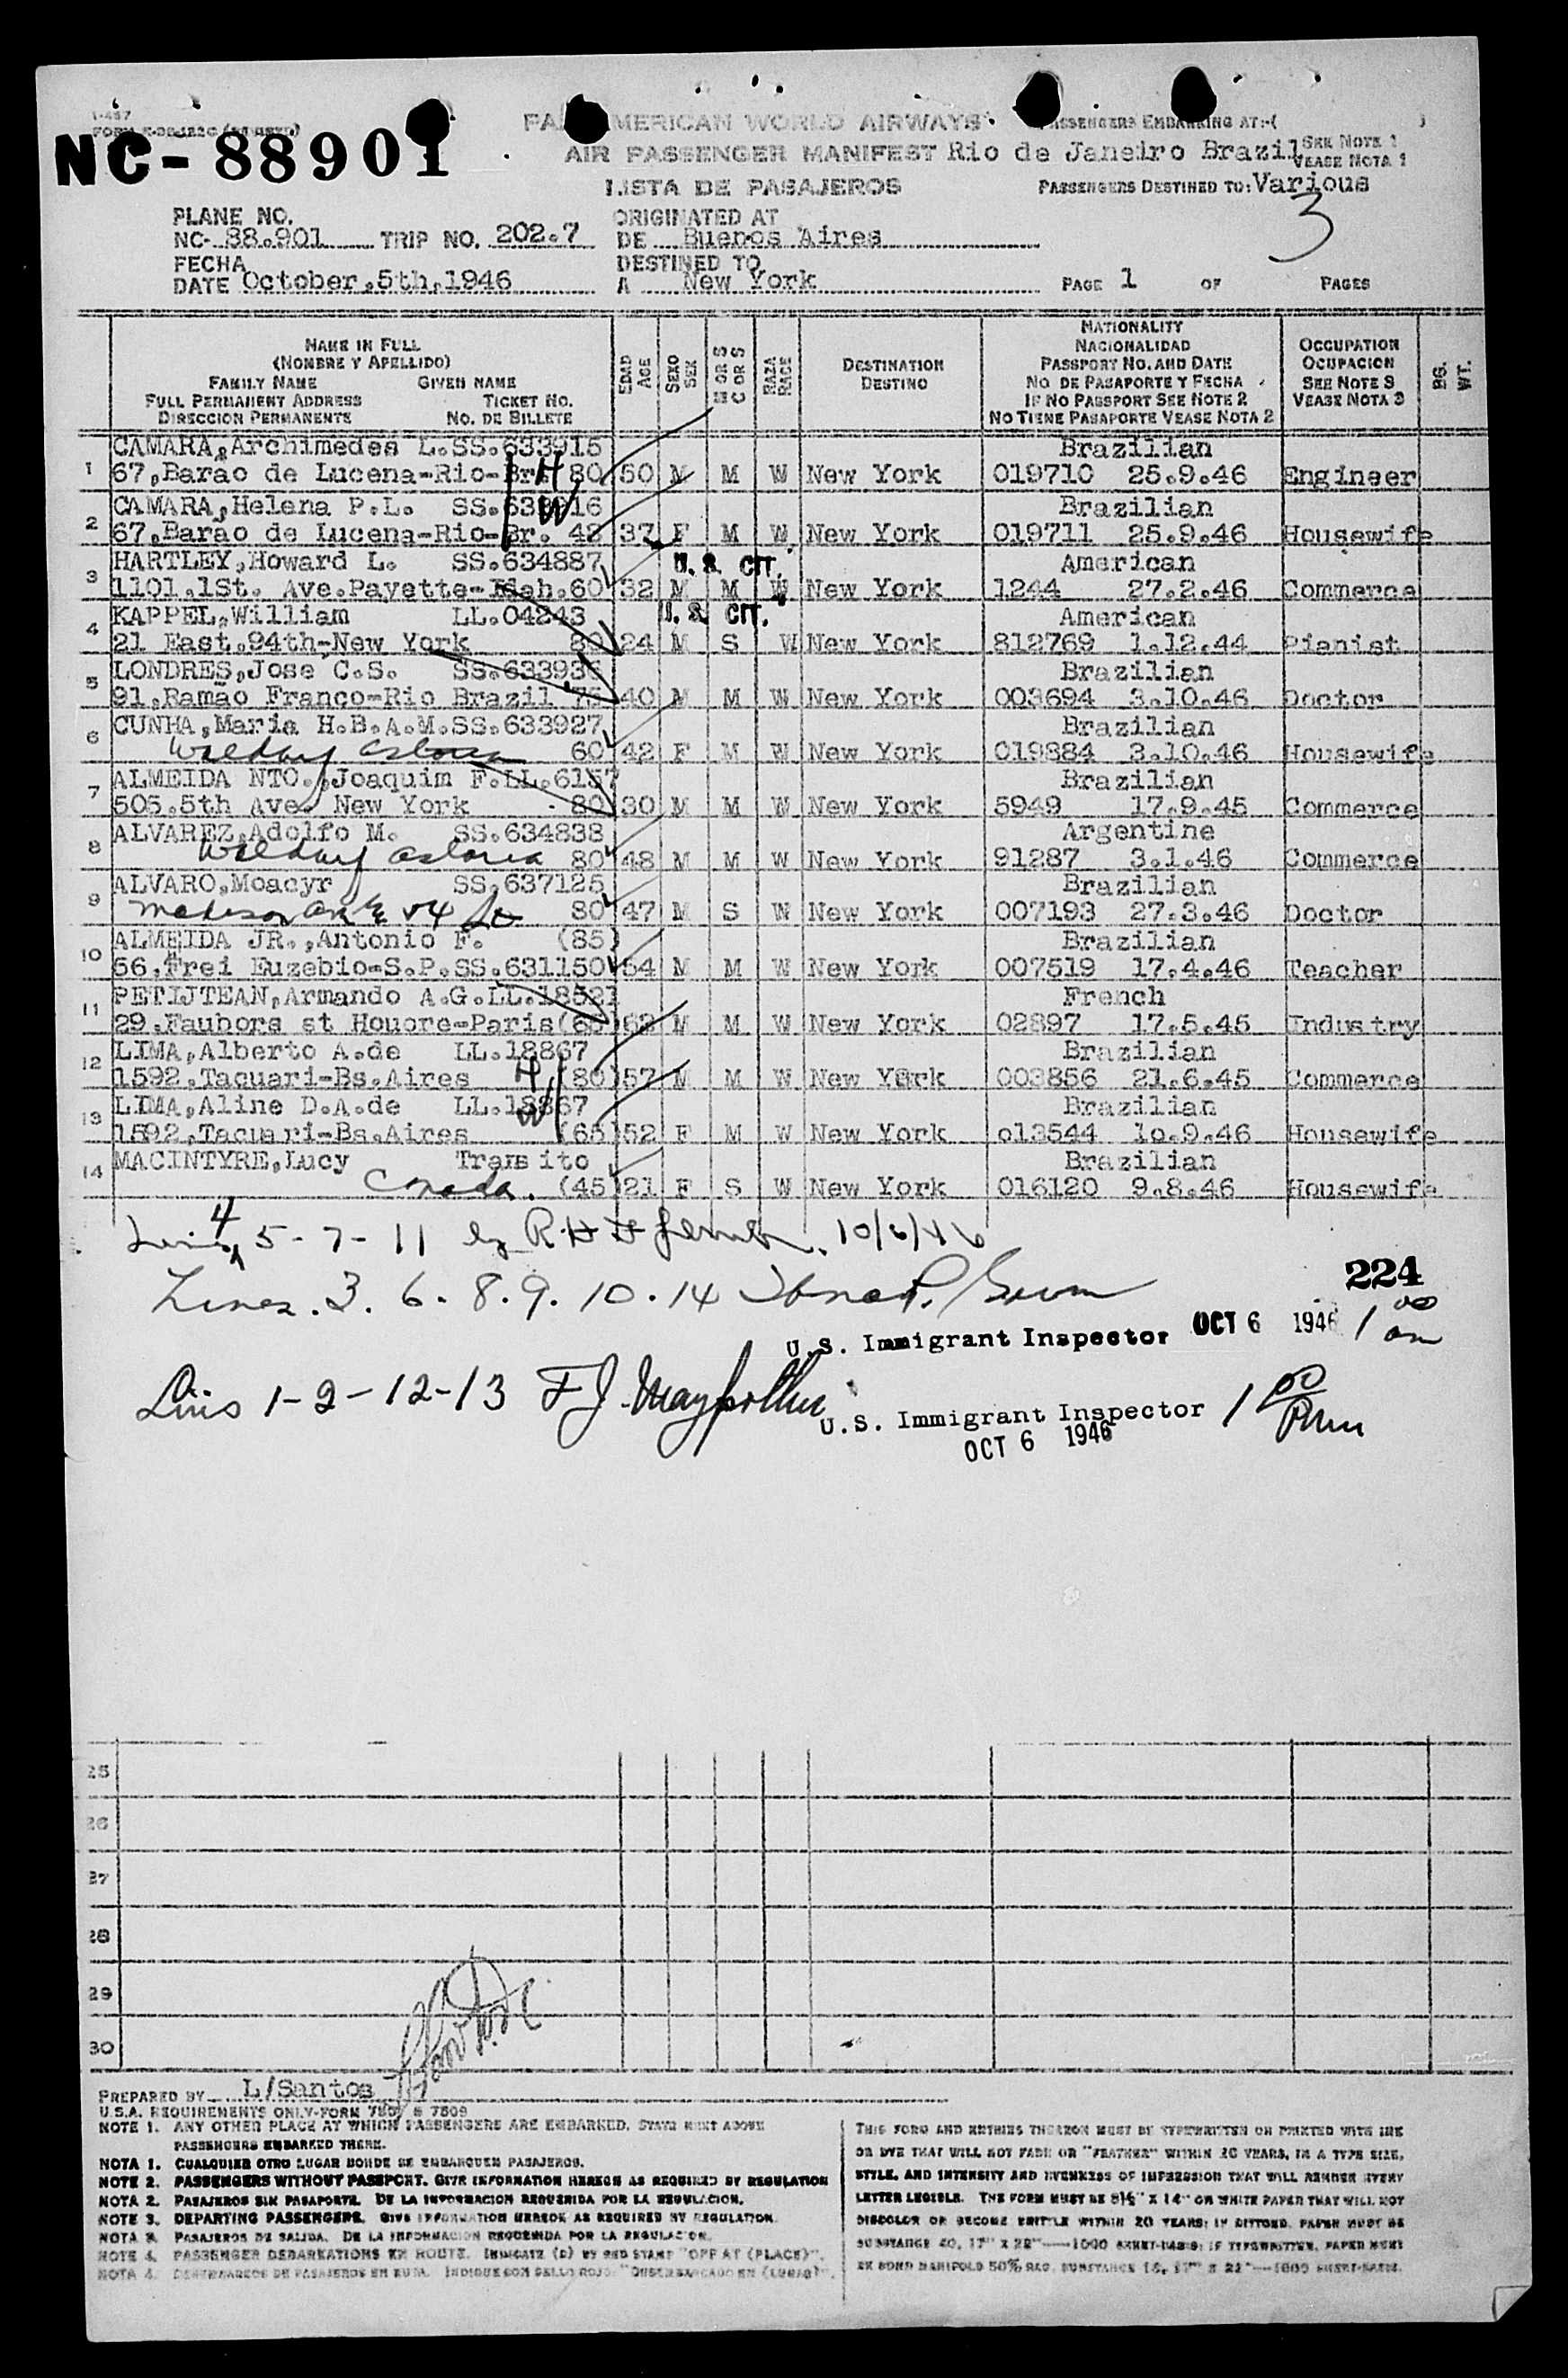 NC-88901
AMERICAN WORLD AIRWAYS
PASSENGERS EMBARKING AT:-( )
AIR PASSENGER MANIFEST Rio de Janeiro Brazil SEE NOTE 1
VEASE NOTA 1
LISTA DE PASAJEROS
PASSENGERS DESTINED TO: Various
3
PLANE NO.
NC- 88.901 TRIP NO. 202.7
ORIGINATED AT
DE Buenos Aires
FECHA
DATE October,5th,1946
DESTINED TO
A New York
PAGE 1 OF PAGES
NAME IN FULL
(NOMBRE Y APELLIDO)
FAMILY NAME GIVEN NAME
FULL PERMANENT ADDRESS TICKET NO.
DIRECCION PERMANENTE NO. DE BILLETE
EDAD
AGE
SEXO
SEX
M OR S
C OR S
RAZA
RACE
DESTINATION
DESTINO
NATIONALITY
NACIONALIDAD
PASSPORT NO. AND DATE
NO. DE PASAPORTE Y FECHA
IF NO PASSPORT SEE NOTE 2
NO TIENE PASAPORTE VEASE NOTA 2
OCCUPATION
OCUPACION
SEE NOTE 3
VEASE NOTA 3
BG.
WT.
CAMARA,Archimedes L.SS.633915 Brazilian
1 67,Barao de Lucena-Rio-Br. H 80 50 M M W New York 019710 25.9.46 Engineer
CAMARA,Helena P.L. SS.633916 W Brazilian
2 67,Barao de Lucena-Rio-Br. 48 37 F M W New York 019711 25.9.46 Housewife
HARTLEY,Howard L. SS.634887 U. S. CIT. American
3 1101.1St. Ave.Payette-Idah.60 32 M M W New York 1244 27.2.46 Commerce
KAPPEL,William LL.04243 U. S. CIT. American
4 21 East.94th-New York 80 24 M S W New York 812769 1.12.44 Pianist
LONDRES,Jose C.S. SS.633936 Brazilian
5 91,Ramao Franco-Rio Brazil 76 40 M M W New York 003694 3.10.46 Doctor
CUNHA,Maria H.B.A.M.SS.633927 Brazilian
6 Waldorf Astoria 60 42 F M W New York 019884 3.10.46 Housewife
ALMEIDA NTO.,Joaquim F.LL.6157 Brazilian
7 505.5th Ave. New York 80 30 M M W New York 5949 17.9.45 Commerce
ALVAREZ,Adolfo M. SS.634838 Argentine
8 Waldorf Astoria 80 48 M M W New York 91287 3.1.46 Commerce
ALVARO,Moacyr SS.637125 Brazilian
9 Madison 80 47 M S W New York 007193 27.3.46 Doctor
ALMEIDA JR.,Antonio F. (85) Brazilian
10 56,Frei Euzebio-S.P.SS.631150 54 M M W New York 007519 17.4.46 Teacher
PETIJTEAN,Armando A.G.LL.18521 French
11 29.Faubors st Houore-Paris(65) 62 M M W New York 02897 17.5.45 Industry
LIMA,Alberto A.de LL.18867 Brazilian
12 1592.Tacuari-Bs.Aires H (80) 57 M M W New York 003856 21.6.45 Commerce
LIMA,Aline D.A.de LL.18867 W Brazilian
13 1592,Tacuari-Bs.Aires (65) 52 F M W New York o13544 1o.9.46 Housewife
MACINTYRE,Lucy Transito Brazilian
14 Canada. (45) 21 F S W New York 016120 9.8.46 Housewife
Lines 4 5-7-11 by 10/6/46
224
Lines. 3. 6. 8. 9. 10. 14
U.S. Immigrant Inspector OCT 6 1946 1 00 am
Lines 1-2-12-13 F J
U.S. Immigrant Inspector 1 00 PM
OCT 6 1946
25
26
27
28
29
30
PREPARED BY L/Santos
U.S.A. REQUIREMENTS ONLY-FORM 7507 & 7509
NOTE 1. ANY OTHER PLACE AT WHICH PASSENGERS ARE EMBARKED, STATE NEXT ABOVE
PASSENGERS EMBARKED THERE.
NOTA 1. CUALQUIER OTRO LUGAR DONDE SE EMBARQUEN PASAJEROS.
NOTE 2. PASSENGERS WITHOUT PASSPORT. GIVE INFORMATION HEREON AS REQUIRED BY REGULATION
NOTA 2. PASAJEROS SIN PASAPORTE. DE LA INFORMACION REQUERIDA POR LA REGULACION.
NOTE 3. DEPARTING PASSENGERS. GIVE INFORMATION HEREON AS REQUIRED BY REGULATION.
NOTA 3. PASAJEROS DE SALIDA. DE LA INFORMACION REQUERIDA POR LA REGULACION.
NOTE 4. PASSENGER DEBARKATIONS EN ROUTE. INDICATE (D) BY RED STAMP "OFF AT (PLACE)".
NOTA 4. DESEMBARCOS DE PASAJEROS EN RUTA. INDIQUE CON SELLO ROJO: "DESEMBARCADO EN (LUGAR)".
THIS FORM AND ENTRIES THEREON MUST BE TYPEWRITTEN OR PRINTED WITH INK
OR DYE THAT WILL NOT FADE OR "FEATHER" WITHIN 20 YEARS, IN A TYPE SIZE,
STYLE, AND INTENSITY AND EVENNESS OF IMPRESSION THAT WILL RENDER EVERY
LETTER LEGIBLE. THE FORM MUST BE 8½" X 14" ON WHITE PAPER THAT WILL NOT
DISCOLOR OR BECOME BRITTLE WITHIN 20 YEARS; IF DITTOED, PAPER MUST BE
SUBSTANCE 40, 17" X 22"—1000 SHEET-BASIS; IF TYPEWRITTEN, PAPER MUST
BE BOND MANIFOLD 50% RAG, SUBSTANCE 16, 17" X 22"—1000 SHEET-BASIS.